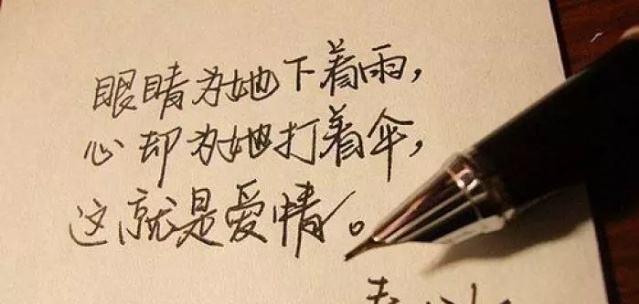 眼睛为她下着雨，
心却为她打着伞，
这就是爱情。